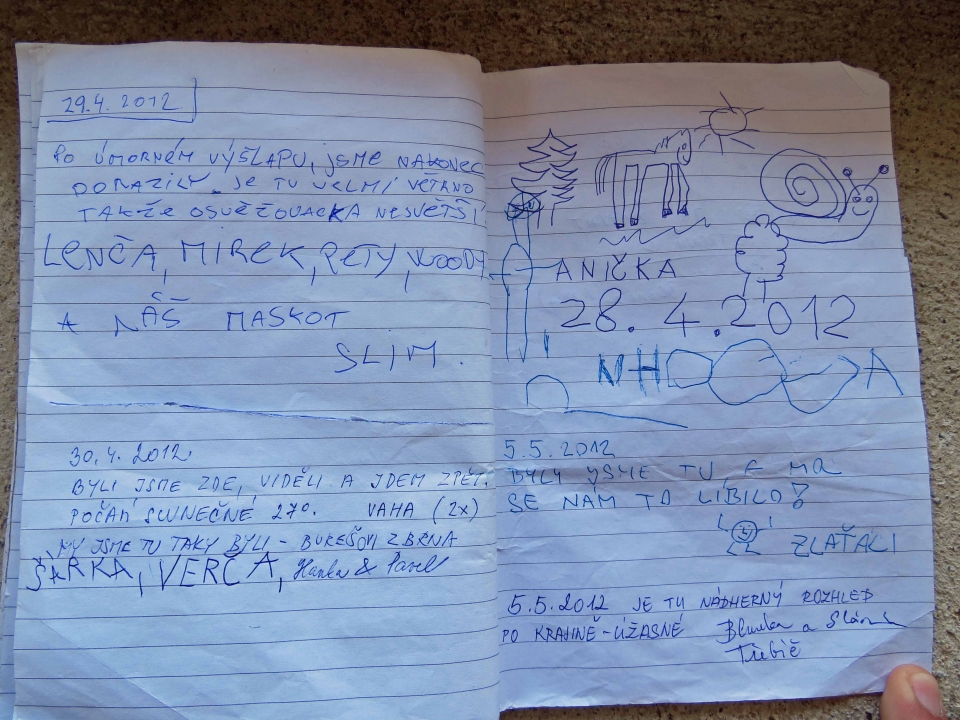 29.4. 2012
PO ÚMORNÉM VÝŠLAPU, JSME NAKONEC
DORAZILY. JE TU VELMI VĚTRNO
TAKŽE OSVĚŽOVAČKA NESVĚTŠÍ
LENČA, MIREK, PETY, WOODY
A NÁŠ MASKOT
SLIM.
30.4. 2012.
BYLI JSME ZDE, VIDĚLI A JDEM ZPĚT.
POČASÍ SLUNEČNÉ 27°. VAHA (2x)
MY JSME TU TAKY BYLI - BUREŠOVI ZBRNA
ŠÁRKA, VERČA, Hanka & Pavel
ANIČKA
28.4.2012
5.5.2012
BYLY YSME TU A
SE NÁM TO LÍBILO!
ZLAŤALI
5.5.2012 JE TU NÁDHERNÝ ROZHLED
PO KRAJINĚ - ÚŽASNÉ
a
Třebíč